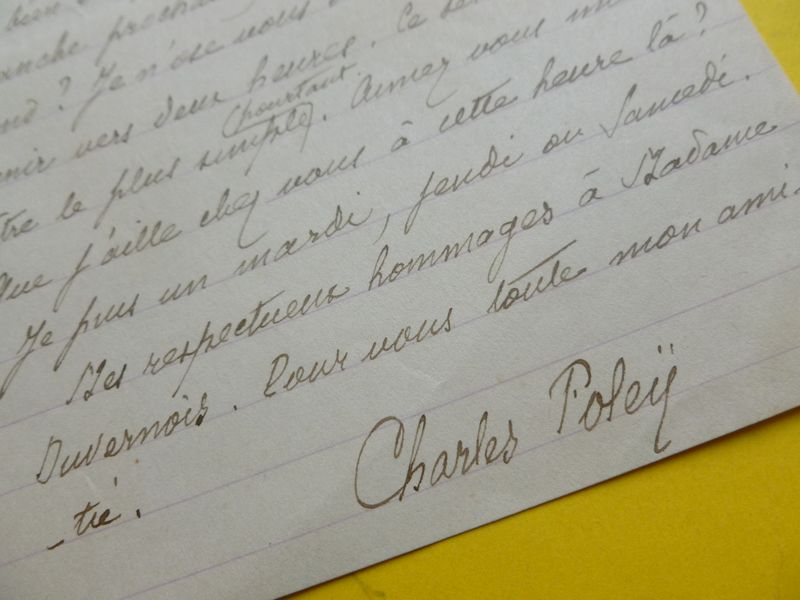 bien
anche prochain
? Je n'ose vous
enir vers deux heures. Ce se
pourtant
tre le plus simple. Aimez vous mi
que j'aille chez vous à cette heure là?
Je puis un mardi, jeudi ou Samedi.
Mes respectueux hommages à Madame
Duvernois. Pour vous toute mon ami-
-tié.
Charles Foleÿ